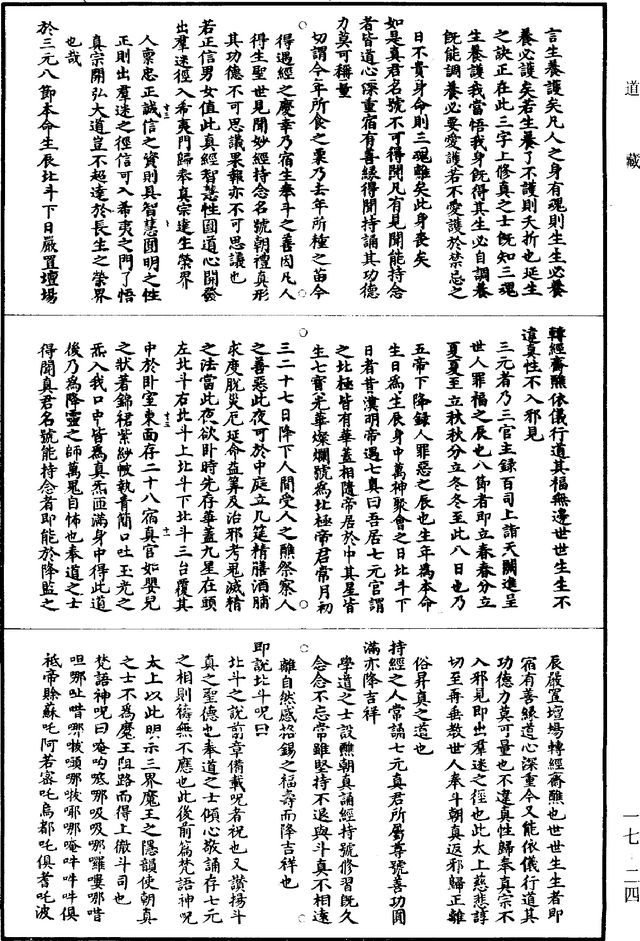 道藏
言生養護矣凡人之身有魂則生生必養
養必護矣若生養了不護則夭折也延生
之訣正在此三字上修真之士既知三魂
生養護我當悟我身既得其生必自調養
既能調養必要愛護若不愛護於禁忌之
日不貴身命則三魂離矣此身喪矣
如是真君名號不可得聞凡有見聞能持念
者皆道心深重宿有善緣得聞持誦其功德
力莫可稱量
切謂今年所食之粟乃去年所種之苗今
得遇經之慶幸乃宿生奉斗之善因凡人
得生聖世見聞妙經持念名號朝禮真形
其功德不可思議果報亦不可思議也
若正信男女值此真經智慧性圓道心開發
出羣迷徑入希夷門歸奉真宗達生榮界
人稟忠正誠信之資則具智慧圓明之性
正則出羣迷之徑信可入希夷之門了悟
真宗開弘大道豈不超達於長生之榮界
也哉
於三元八節本命生辰北斗下日嚴置壇場
轉經齋醮依儀行道其福無邊世世生生不
違真性不入邪見
三元者乃三官主錄百司上詣天闕進呈
世人罪福之辰也八節者即立春春分立
夏夏至立秋秋分立冬冬至此八日也乃
五帝下降錄人罪惡之辰也生年為本命
生日為生辰身中萬神聚會之日北斗下
日者昔漢明帝遇七真曰吾居七元官謂
之北極皆有華蓋相隨帝居於中其星皆
生七寶光華燦爛號為北極帝君常月初
三二十七日降下人間受人之醮祭察人
之善惡此夜可於中庭立几筵精膳酒脯
求度脫災厄延命益筭及治邪考鬼滅精
之法當此夜欲卧時先存華蓋九星在頭
左北斗右北斗上北斗下北斗三台覆其
中於卧室東面存二十八宿真官如嬰兒
之狀著錦裙紫紗帔執青簡口吐玉光之
炁入我口中皆為真炁迊滿身中得此道
後乃為降靈之師萬鬼自怖也奉道之士
得聞真君名號能持念者即能於降監之
辰嚴置壇場轉經齋醮也世世生生者即
宿有善緣道心深重今又能依儀行道其
功德力莫可量也不違真性歸奉真宗不
入邪見即出羣迷之徑也此太上慈悲諄
切至再垂教世人奉斗朝真返邪歸正離
俗昇真之道也
持經之人常誦七元真君所屬尊號善功圓
滿亦降吉祥
學道之士設醮朝真誦經持號修習既久
念念不忘常雖堅持不退與斗真不相遠
離自然感格錫之福壽而降吉祥也
即說北斗呪曰
北斗之說前章備載呪者祝也又讚揚斗
真之聖德也奉道之士傾心敬誦存七元
之相則禱無不應也此後前篇梵語神呪
太上以此明示三界魔王之隱韻使朝真
之士不為魔王阻路而得上徹斗司也
梵語神呪曰唵吶嗯哪吸吸哪囉㗲哪喈
呾哪吡喈哪㗑囕哪㗑哪哪唵吽吽吽俱
祇帝賒蘇吒阿若密吒烏都吒俱耆吒波
一七·二四